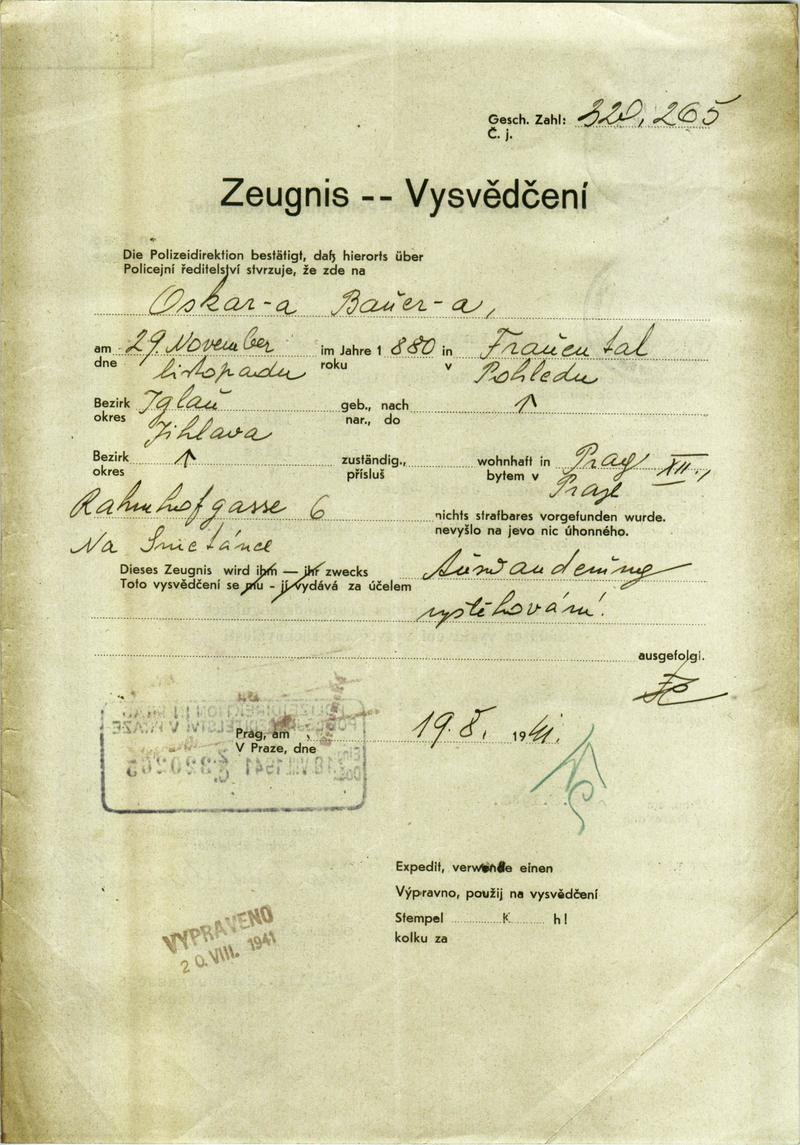 Gesch. Zahl: 320,265
Č. j.
Zeugnis -- Vysvědčení
Die Polizeidirektion bestätigt, daß hierorts über
Policejní ředitelství stvrzuje, že zde na
Oskar-a Bauer-a,
am 29. November im Jahre 1 880 in Frauental
dne listopadu roku v Pohledu
Bezirk Iglau geb., nach ↑
okres Jihlava nar., do
Bezirk ↑ zuständig., wohnhaft in Prag XII.,
okres přísluš bytem v Praze
Rahmhofgasse 6 nichts strafbares vorgefunden wurde.
Na Smetánce nevyšlo na jevo nic úhonného.
Dieses Zeugnis wird ihm — ihr zwecks Auswanderung
Toto vysvědčení se mu - jí vydává za účelem
vystěhování.
ausgefolgt.
Prag, am 19. 8. 1941.
V Praze, dne
POLIZEIDIREKTION IN PRAG
POLICEJNÍ ŘEDITELSTVÍ V PRAZE
18. VIII. 1941 320265
Expedit, verwende einen
Výpravno, použij na vysvědčení
Stempel K h!
kolku za
VYPRAVENO
20. VIII. 1941